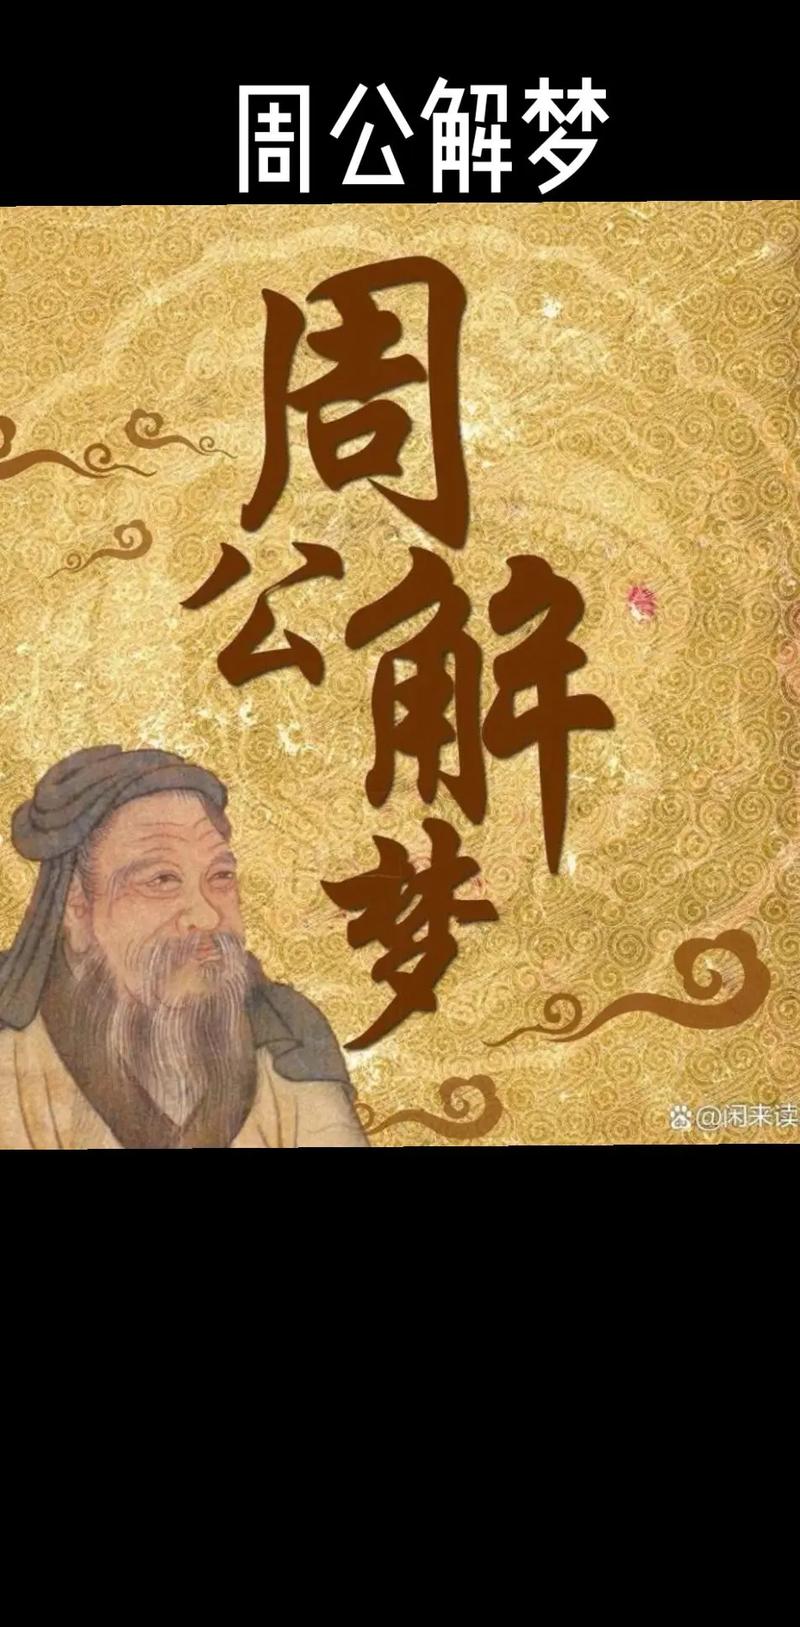 周公解梦
周
公解
梦
@闲来读